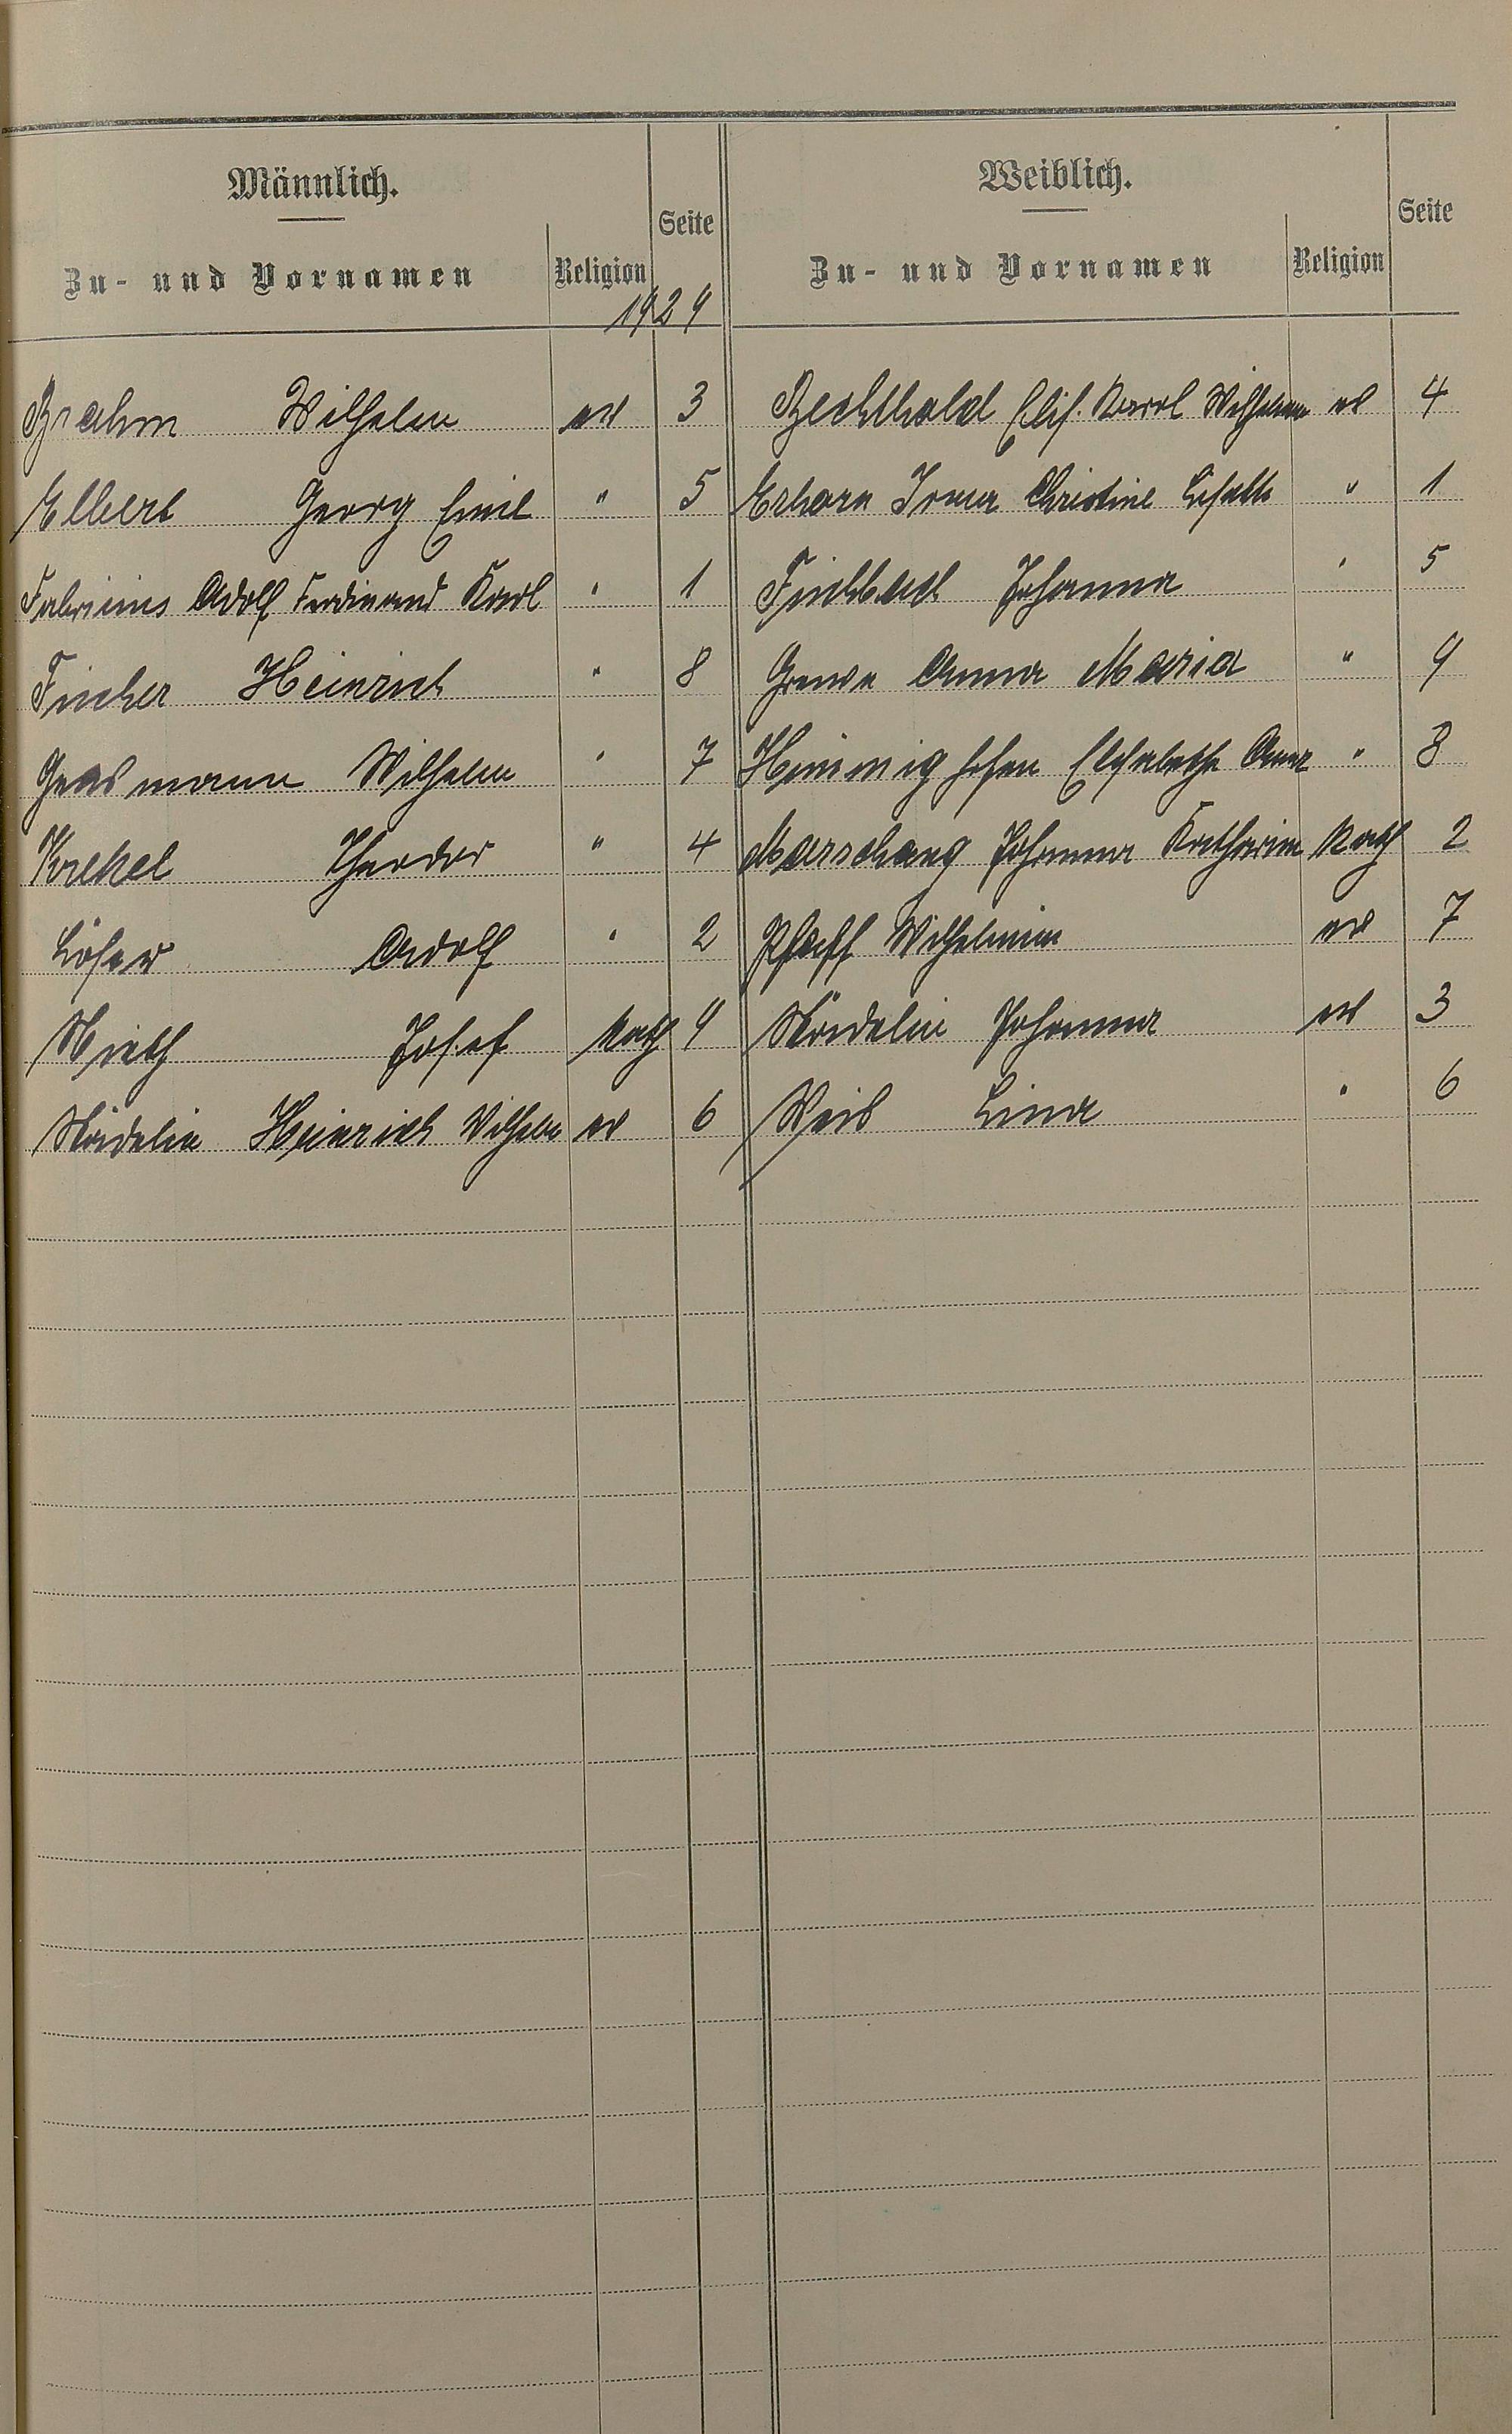 Männlich.
Zu- und Vornamen Religion Seite
Weiblich.
Zu- und Vornamen Religion Seite
1929
Brahm Wilhelm ev 3
Elbert Georg Emil " 5
Fabricius Adolf Ferdinand Karl " 1
Fischer Heinrich " 8
Wilhelm " 7
Krekel Theodor " 4
Löser Adolf " 2
Mieth Josef Kath 9
Nördelin Heinrich Wilhelm ev 6
Bechthold Elis. Karol. Wilhelmine ev 4
Erhorn Irma Christine " 1
Fischbach Johanna " 5
Anna Maria " 9
Elisabethe Anna " 8
Marschang Johanna Katharina Kath 2
Pfaff Wilhelmine ev 7
Nördelin Johanna ev 3
Weis Lina " 6